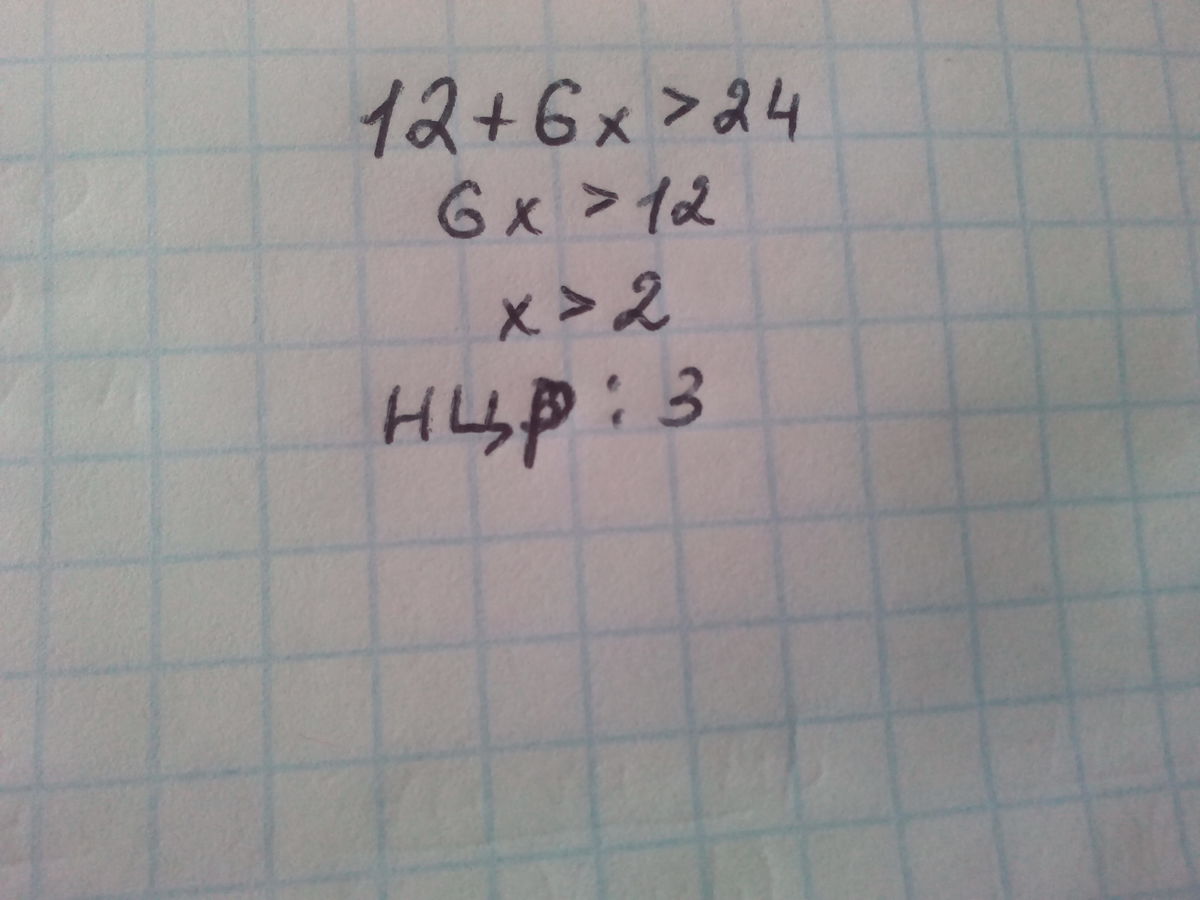 12+6x>24
6x>12
x>2
НЦР: 3